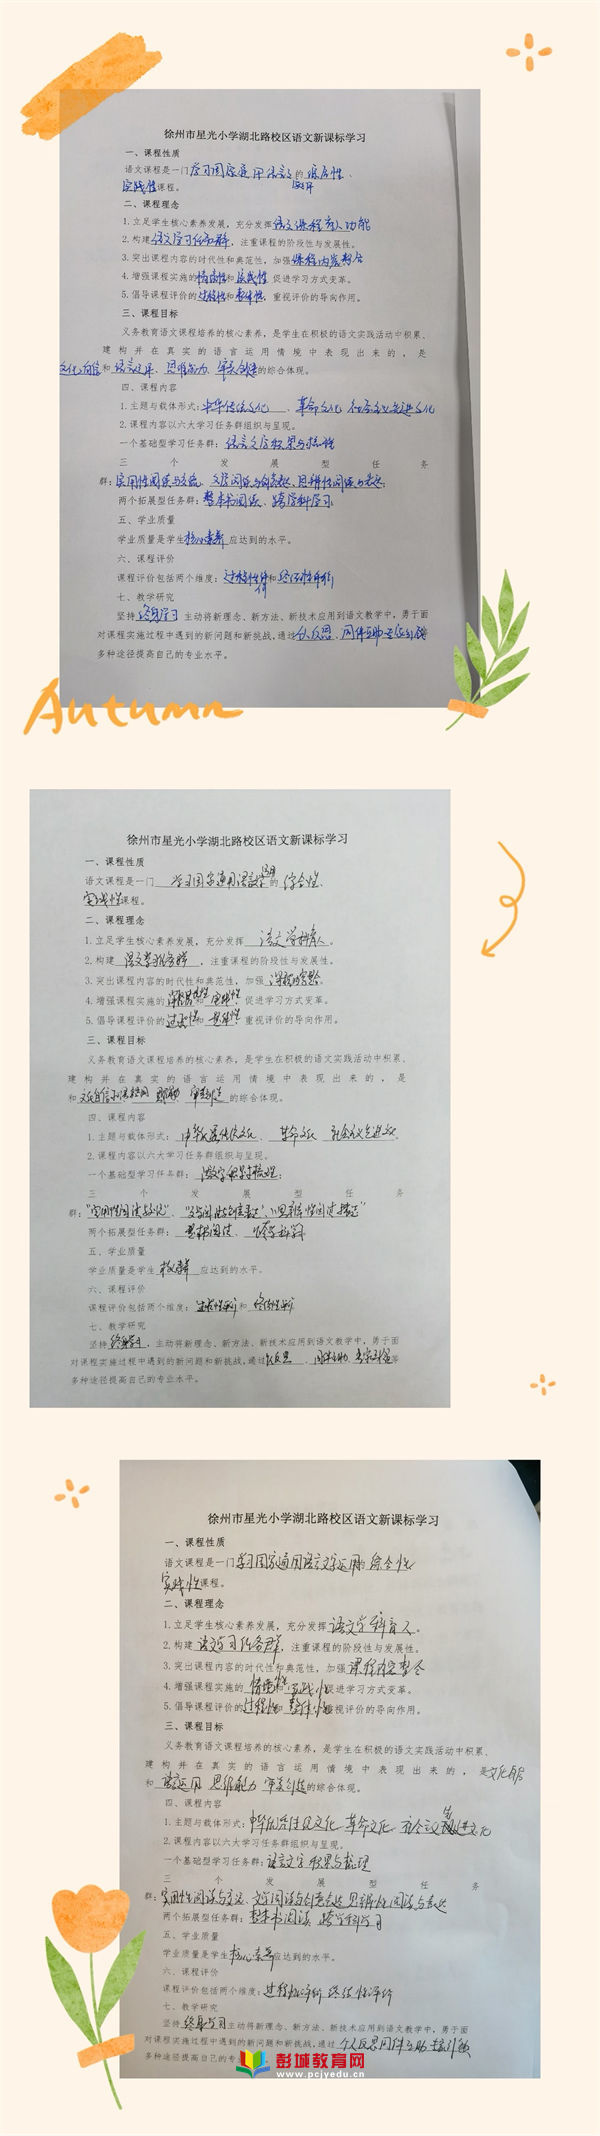 徐州市星光小学湖北路校区语文新课标学习
一、课程性质
语文课程是一门学习国家通用语言文字的综合性、
实践性课程。
二、课程理念
1.立足学生核心素养发展，充分发挥语文课程育人功能
2.构建语文学习任务群，注重课程的阶段性与发展性。
3.突出课程内容的时代性和典范性，加强课程内容整合
4.增强课程实施的情境性和实践性 促进学习方式变革。
5.倡导课程评价的过程性和整体性，重视评价的导向作用。
三、课程目标
义务教育语文课程培养的核心素养，是学生在积极的语文实践活动中积累、
建构并在真实的语言运用情境中表现出来的，是
文化自信和语言运用、思维能力、审美创造的综合体现。
四、课程内容
1.主题与载体形式：中华传统文化、革命文化 社会主义先进文化
2.课程内容以六大学习任务群组织与呈现。
一个基础型学习任务群：语言文字积累与梳理
三个发展型任务
群：实用性阅读与交流、文学阅读与创意表达、思辨性阅读与表达；
两个拓展型任务群：整本书阅读、跨学科学习。
五、学业质量
学业质量是学生核心素养应达到的水平。
六、课程评价
课程评价包括两个维度：过程性评价和终结性评价
七、教学研究
坚持终身学习 主动将新理念、新方法、新技术应用到语文教学中，勇于面
对课程实施过程中遇到的新问题和新挑战，通过个人反思、同伴互助 等
多种途径提高自己的专业水平。
Autumn
徐州市星光小学湖北路校区语文新课标学习
一、课程性质
语文课程是一门学习国家通用语言文字运用的 综合性、
实践性课程。
二、课程理念
1.立足学生核心素养发展，充分发挥语文学科育人。
2.构建语文学习任务群，注重课程的阶段性与发展性。
3.突出课程内容的时代性和典范性，加强课程内容。
4.增强课程实施的情境性和实践性，促进学习方式变革。
5.倡导课程评价的过程性和整体性，重视评价的导向作用。
三、课程目标
义务教育语文课程培养的核心素养，是学生在积极的语文实践活动中积累、
建构并在真实的语言运用情境中表现出来的，是
和文化自信、语言运用、思维能力、审美创造的综合体现。
四、课程内容
1.主题与载体形式：中华优秀传统文化、革命文化 社会主义先进文化。
2.课程内容以六大学习任务群组织与呈现。
一个基础型学习任务群：
三个发展型任务
群：“实用性阅读与交流”、“文学阅读与创意表达”、“思辨性阅读与表达”
两个拓展型任务群：整本书阅读、跨学科学习。
五、学业质量
学业质量是学生核心素养应达到的水平。
六、课程评价
课程评价包括两个维度：过程性评价和终结性评价
七、教学研究
坚持终身学习，主动将新理念、新方法、新技术应用到语文教学中，勇于面
对课程实施过程中遇到的新问题和新挑战，通过个人反思、同伴互助、专家引领等
多种途径提高自己的专业水平。
徐州市星光小学湖北路校区语文新课标学习
一、课程性质
语文课程是一门学习国家通用语言文字运用的综合性
实践性课程。
二、课程理念
1.立足学生核心素养发展，充分发挥语文学科育人。
2.构建语文学习任务群，注重课程的阶段性与发展性。
3.突出课程内容的时代性和典范性，加强课程内容整合
4.增强课程实施的情境性和实践性促进学习方式变革。
5.倡导课程评价的过程性和整体性重视评价的导向作用。
三、课程目标
义务教育语文课程培养的核心素养，是学生在积极的语文实践活动中积累、
建构并在真实的语言运用情境中表现出来的，是文化自信
和语言运用 思维能力 审美创造的综合体现。
四、课程内容
1.主题与载体形式：中华优秀传统文化 革命文化 社会主义先进文化
2.课程内容以六大学习任务群组织与呈现。
一个基础型学习任务群：语言文字积累与梳理
三个发展型任务
群：实用性阅读与交流、文学阅读与创意表达 思辨性阅读与表达
两个拓展型任务群：整本书阅读 跨学科学习
五、学业质量
学业质量是学生核心素养应达到的水平。
六、课程评价
课程评价包括两个维度：过程性评价 终结性评价
七、教学研究
坚持终身学习主动将新理念、新方法、新技术应用到语文教学中，勇于面
对课程实施过程中遇到的新问题和新挑战，通过个人反思同伴互助 专家引领
多种途径提高自己的专
彭城教育网
www.pcjyedu.cn